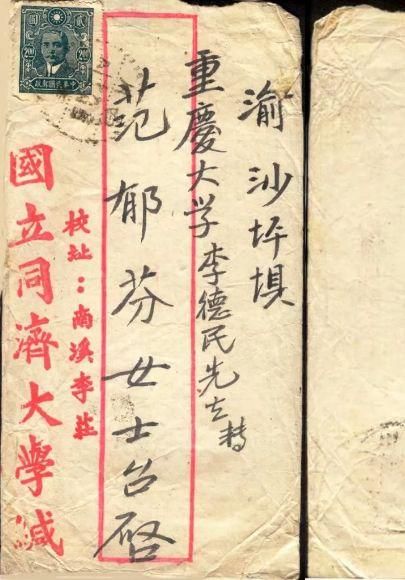 渝沙坪垻
重慶大学李德民先生轉
范郁芬女士台啓
校址：南溪李莊
國立同濟大學緘
貳圓
200 200
中華民國郵政